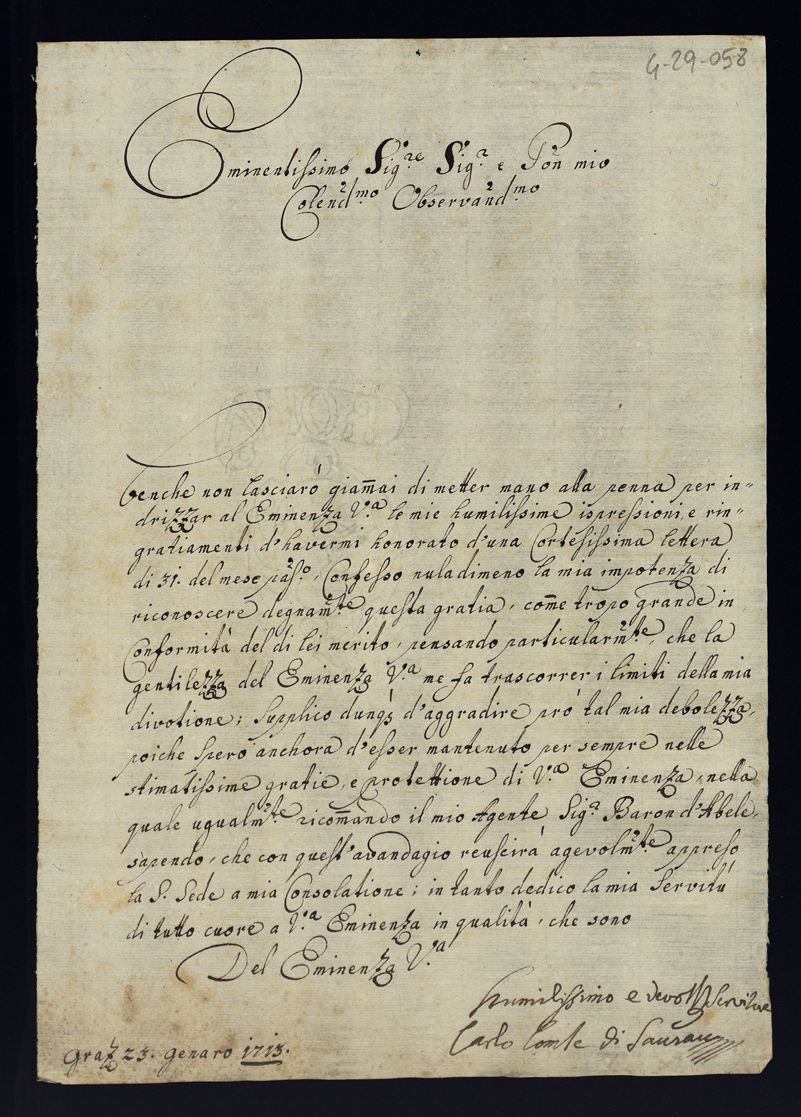 4-29-058
Eminentissimo Sig.re Sig.r e Pron mio
Colend.mo Observand.mo
Benche non lasciarò giam̄ai di metter mano alla penna per in=
drizzar al Eminenza V.a le mie humilissime ispressioni, e rin=
gratiamenti d'havermi honorato d'una Cortesissima lettera
di 31. del mese pass.o, Confesso nuladimeno la mia impotenza di
riconoscere degnam.te questa gratia, com̄e tropo grande in
Conformità del di lei merito, pensando particularm.te, che la
gentilezza del Eminenza V.a me fa trascorrer i limiti della mia
divotione; Supplico dunq3 d'aggradire prò tal mia debolezza,
poiche spero anchora d'esser mantenuto per sempre nelle
stimatissime gratie, e protettione di V.a Eminenza, nella
quale ugualm.te ricom̄ando il mio Agente Sig.r Baron d'Abele,
sapendo, che con quest'avandagio reuscirà agevolm.te appreso
la S. Sede a mia Consolatione; in tanto dedico la mia Servitù
di tutto cuore a V.a Eminenza in qualità, che sono
Del Eminenza V.a
humilissimo e devot. Servitore
Carlo Conte di Saurau
Graz 23. Genaro 1713.